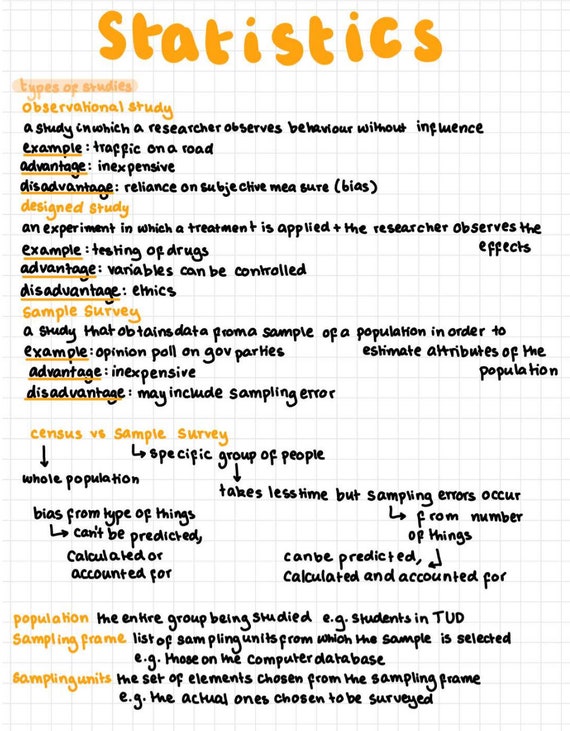 Statistics
types of studies
observational study
a study in which a researcher observes behaviour without influence
example: traffic on a road
advantage: inexpensive
disadvantage: reliance on subjective measure (bias)
designed study
an experiment in which a treatment is applied + the researcher observes the
effects
example: testing of drugs
advantage: variables can be controlled
disadvantage: ethics
Sample Survey
a study that obtains data from a sample of a population in order to
estimate attributes of the
population
example: opinion poll on gov parties
advantage: inexpensive
disadvantage: may include sampling error
census vs Sample Survey
↓ ↳ specific group of people
whole population
↓
takes less time but sampling errors occur
↳ from number
of things
↓
can be predicted,
calculated and accounted for
bias from type of things
↳ can't be predicted,
calculated or
accounted for
population the entire group being studied e.g. students in TUD
Sampling frame list of sampling units from which the sample is selected
e.g. those on the computer database
Sampling units the set of elements chosen from the sampling frame
e.g. the actual ones chosen to be surveyed